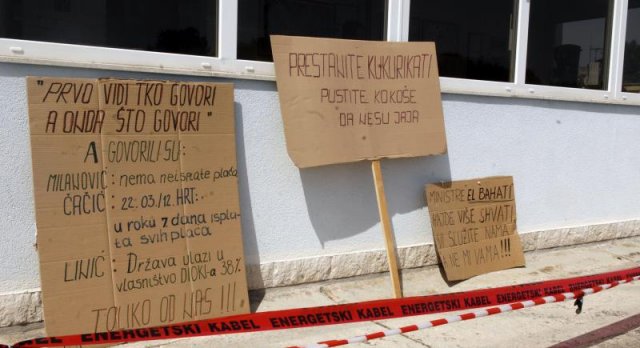 "PRVO VIDI TKO GOVORI
A ONDA ŠTO GOVORI"
A GOVORILI SU:
MILANOVIĆ: nema neisplate plaća
ČAČIĆ: 22.03./12. HRT:
u roku 7 dana ispla-
ta svih plaća
LINIĆ: Država ulazi u
vlasništvo DIOKI-a 38%
TOLIKO OD NAS!!!
PRESTANITE KUKURIKATI
PUSTITE KOKOŠE
DA NESU JAJA
MINISTRE EL BAHATI
HAJDE VIŠE SHVATI
VI SLUŽITE NAMA
A NE MI VAMA!!!
ENERGETSKI KABEL ENERGETSKI KABEL ENERGETSKI KABEL ENERGETSKI KABEL